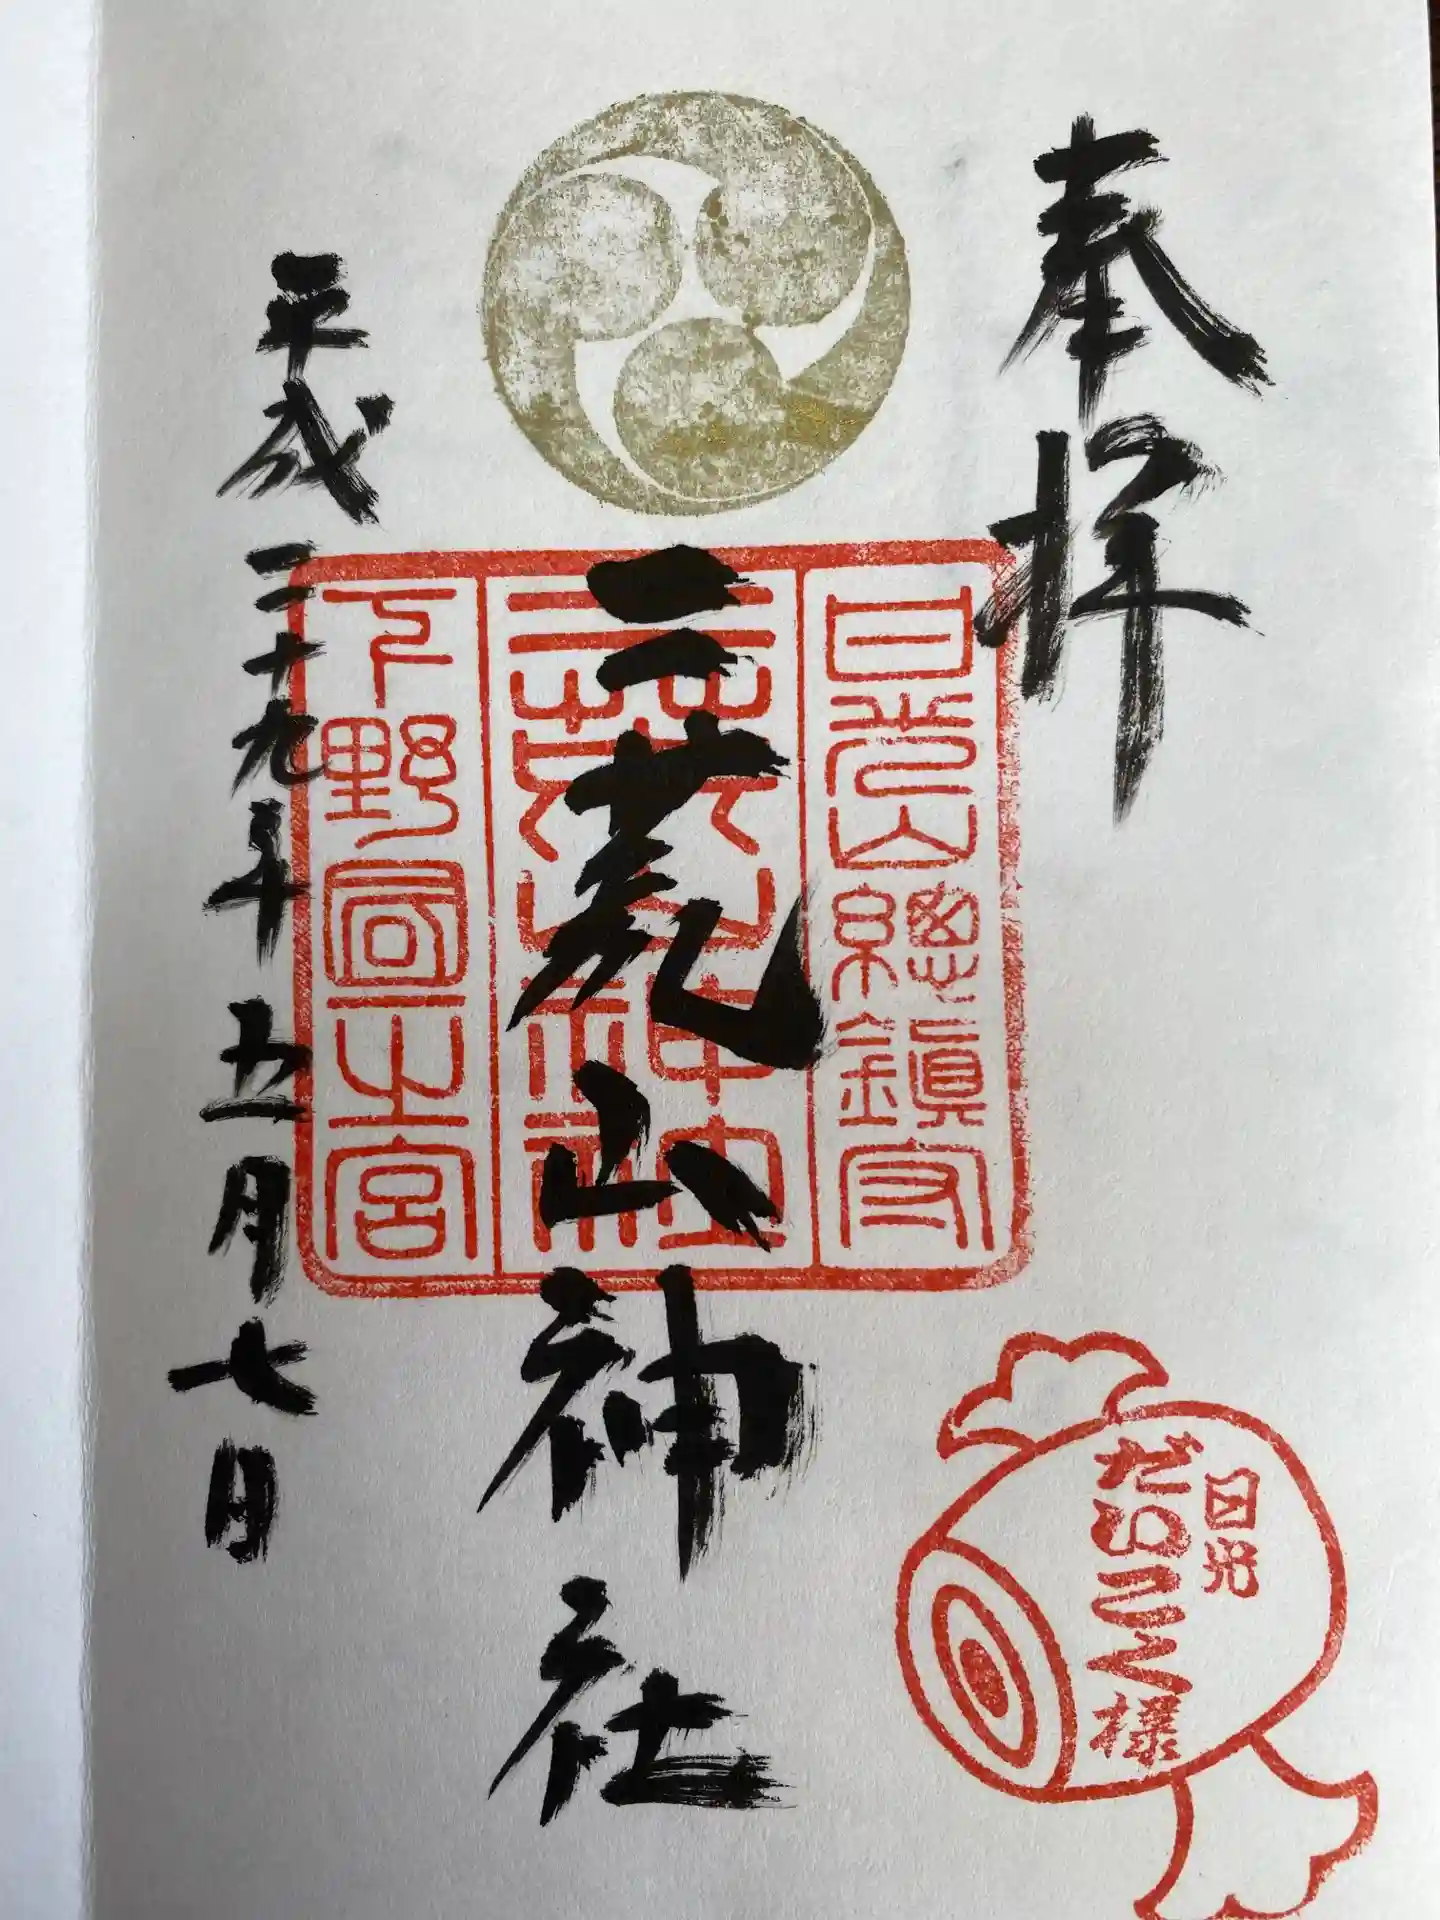 奉拝
日光山總鎮守
二荒山神社
二荒山神社
下野國一之宮
平成二十九年五月七日
日光
だいこく様